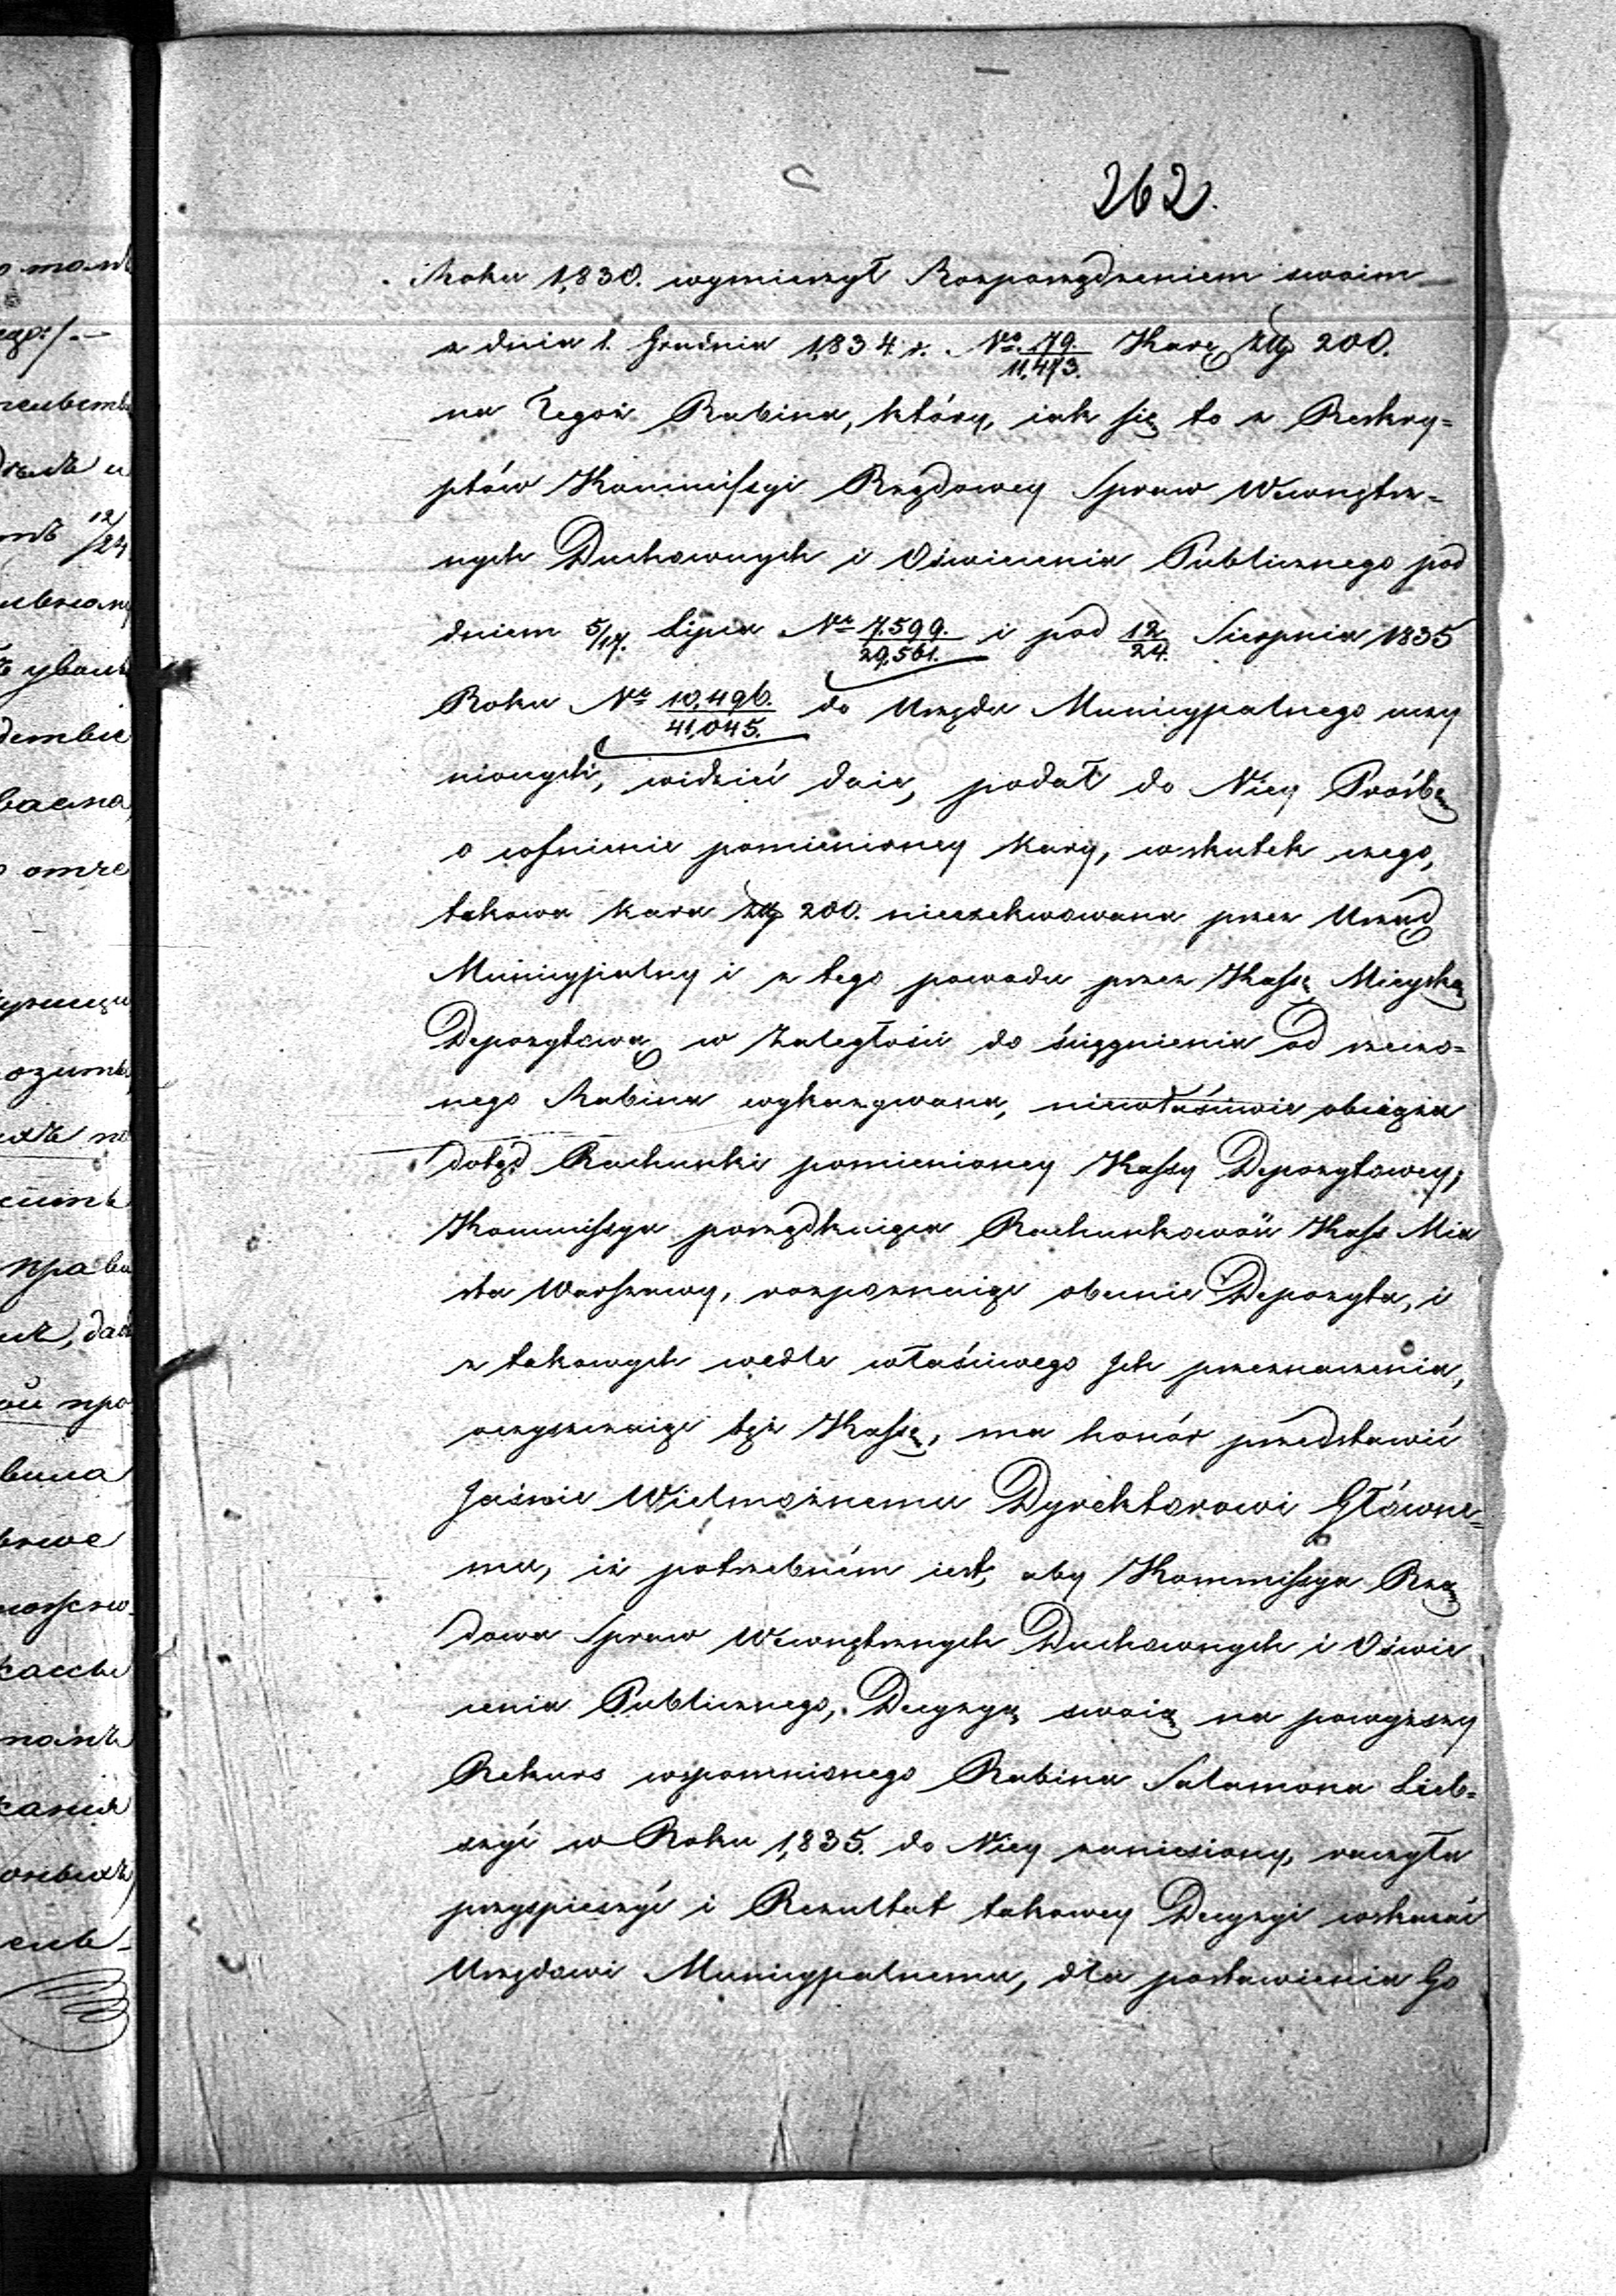 262.
Roku 1830. wymierzył Rozporządzeniem swoim
z dnia 1. Grudnia 1834 r. Nro 79./11,473. Karę złp 200.
na Tegoż Rabina, który, iak się to z Reskry=
ptów Kommissyi Rządowey Spraw Wewnętrz=
nych Duchownych i Oświecenia Publicznego pod
dniem 5/17. Lipca Nro 7.599./29,561. i pod 12/24. Sierpnia 1835
Roku Nro 10,496./41,045. do Urzędu Municypalnego uczy
nionych, widzieć daie, podał do Niey Prośbę
o cofnienie pomienioney kary, wskutek czego,
takowa kara złp 200. niexekwowana przez Urząd
Municypalny i z tego powodu przez Kassę Mieyską
Depozytową w zaległości do ściągnienia od rzeczo=
nego Rabina wykazywana, niewłaściwie obciąża
dotąd Rachunki pomienioney Kassy Depozytowey;
Kommissya porządkuiąca Rachunkowość Kass Mia
sta Warszawy, rozpoznaiąc obecnie Depozyta, i
z takowych wedle właściwego Jch przeznaczenia,
oczyszczaiąc tęż Kassę, ma honór przedstawić
Jaśnie Wielmożnemu Dyrektorowi Główne=
mu, iż potrzebném iest, aby Kommissya Rzą
dowa Spraw Wewnętrznych Duchownych i Oświe
cenia Publicznego, Decyzyą swoią na powyższy
Rekurs wspomnionego Rabina Salamona Lieb=
szyc w Roku 1,835. do Niey zaniesiony, raczyła
przyspieszyć i Rezultat takowey Decyzyi wskazać
Urzędowi Municypalnemu, dla postawienia Go